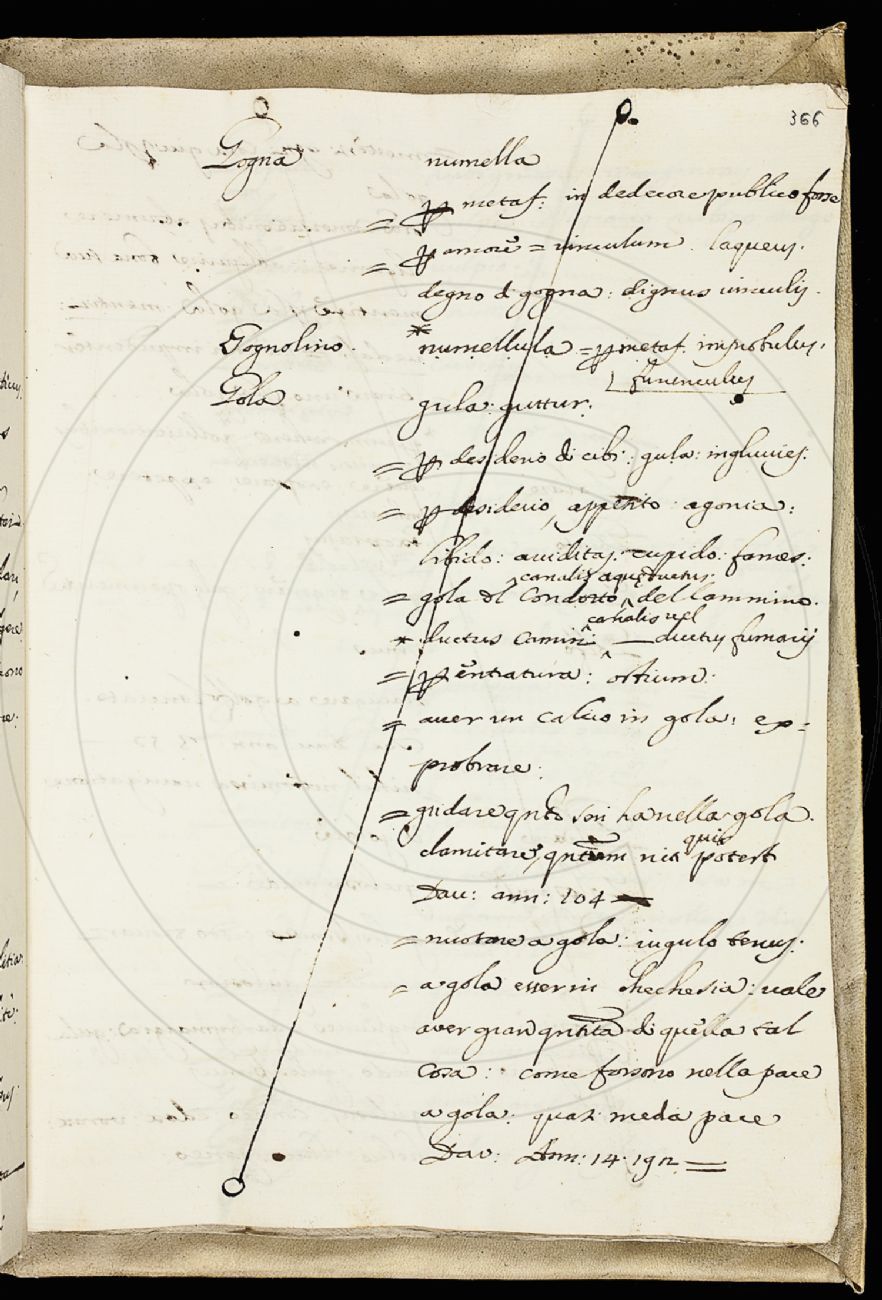 366
Gogna numella
= p metaf: in dedecore publico forse
= p amorē = vinculum. laqueus.
degno d gogna: dignus vinculis.
Gognolino. * numellula = p metaf.
funiculus
Gola gula: guttur:
= p desiderio di cibi: gula: ingluvies:
= p desiderio, appetito agonia:
libido: aviditas: cupido: fames:
canalis aquæductus:
= gola dl Condotto, del Cammino.
canalis vel
* ductus camini — ductus fumarij
= p entratura: ostium:
= aver un calcio in gola: ex=
probrare:
= gridare qnto se ha nella gola.
quis
clamitare, qntum potest
Dav: ann: 104
= nuotare a gola: iugulo tenus:
= a gola esser in chechesia: vale
aver gran qntità di quella tal
Cosa: come forono nella pace
a gola: quasi meda pace
Dav: Ann: 14. 192 =